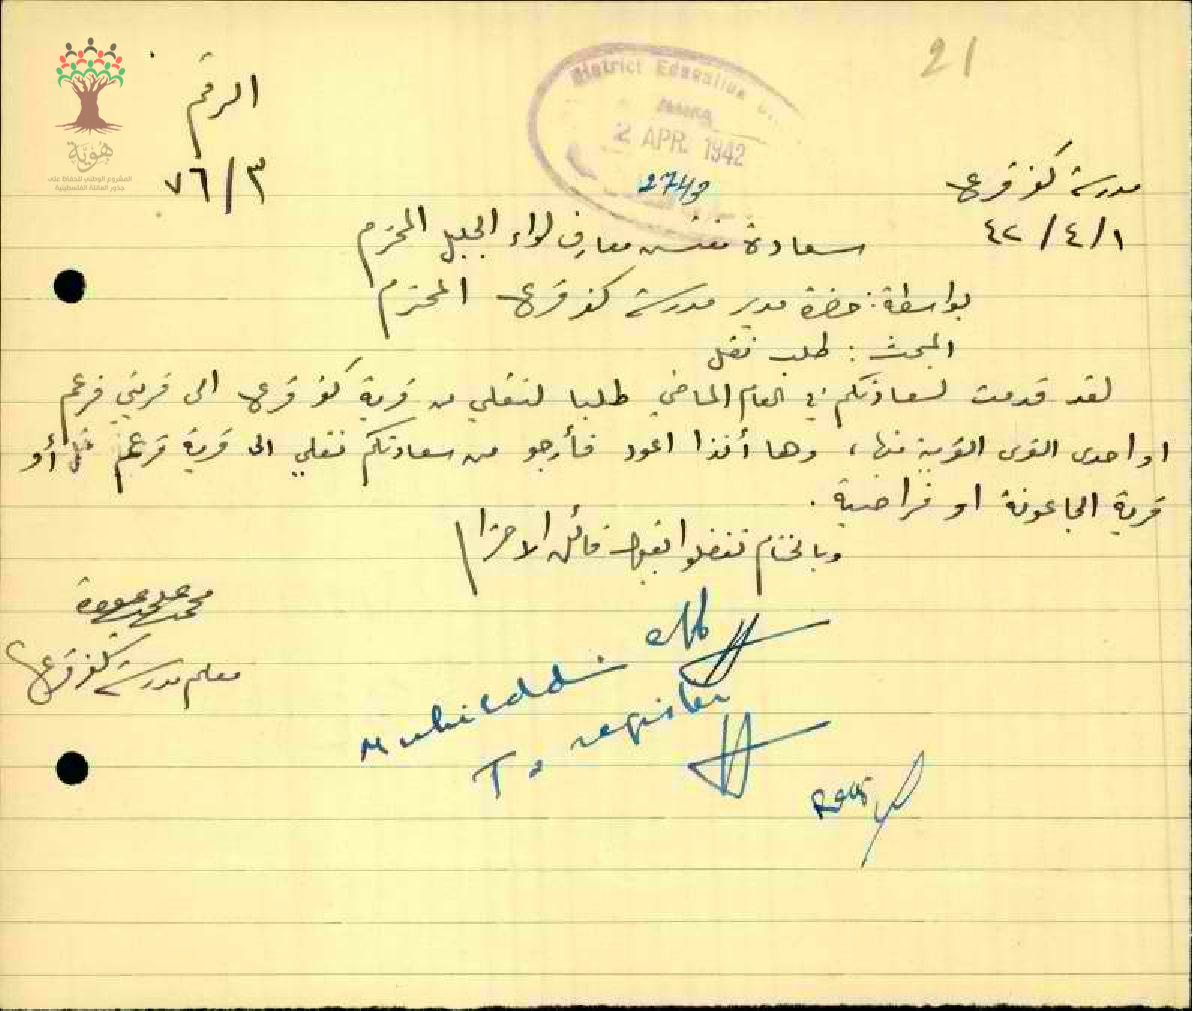 21
District Education
HAIFA
2 APR. 1942
2743
هوية
المشروع الوطني للحفاظ على
جذور العائلة الفلسطينية
الرقم
٧٦/٣
مدرسة كفر قرع
٤٢/٤/١
سعادة مفتش معارف لواء الجليل المحترم
بواسطة: حضرة مدير مدرسة كفر قرع المحترم
المبحث: طلب نقل
لقد قدمت لسعادتكم في العام الماضي طلبا لنقلي من قرية كفر قرع الى قريتي فرعم
او احدى القرى القريبة منها، وها أنذا اعود فأرجو من سعادتكم نقلي الى قرية فرعم أو
قرية الجاعونة او فراضية.
وبالختام تفضلوا بقبول فائق الاحترام
محمد علي حموده
معلم مدرسة كفر قرع
Muhieddin
To register